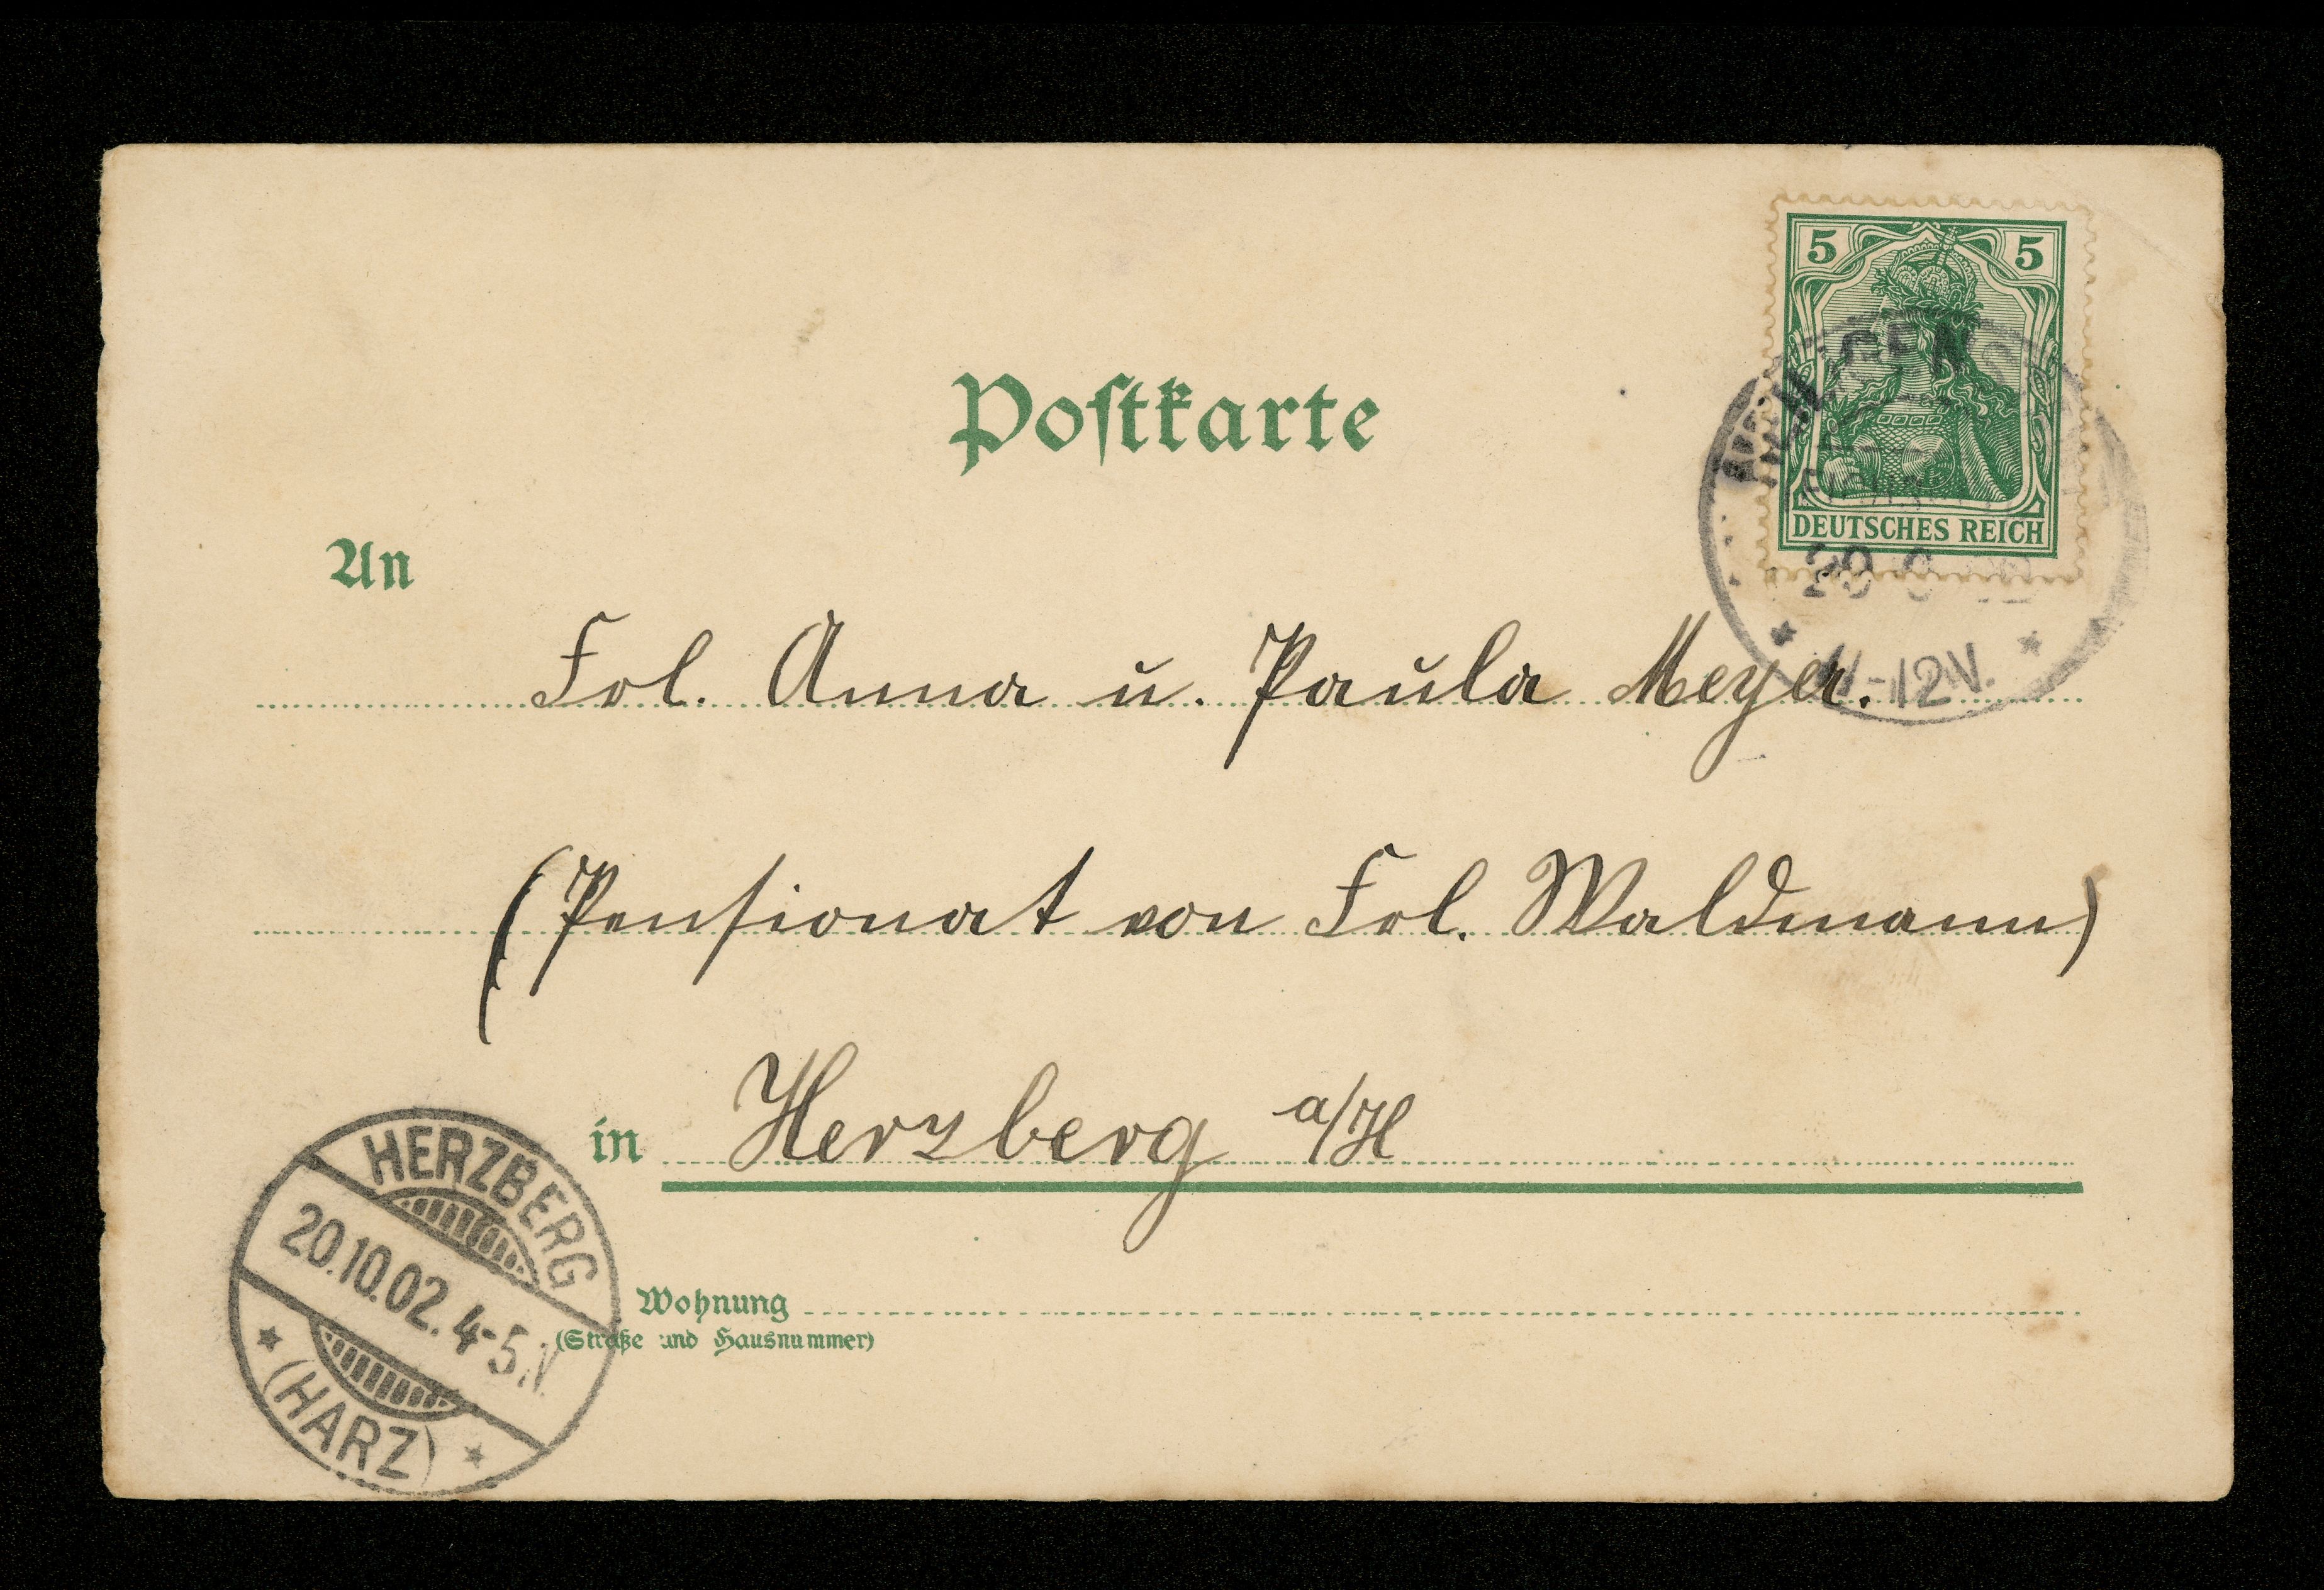 5 5
DEUTSCHES REICH
11-12V.
Postkarte
An
Frl. Anna u. Paula Meyer.
(Pensionat von Frl. Waldmann)
in Herzberg a/H
HERZBERG
20.10.02. 4-5N.
(HARZ)
Wohnung
(Straße und Hausnummer)